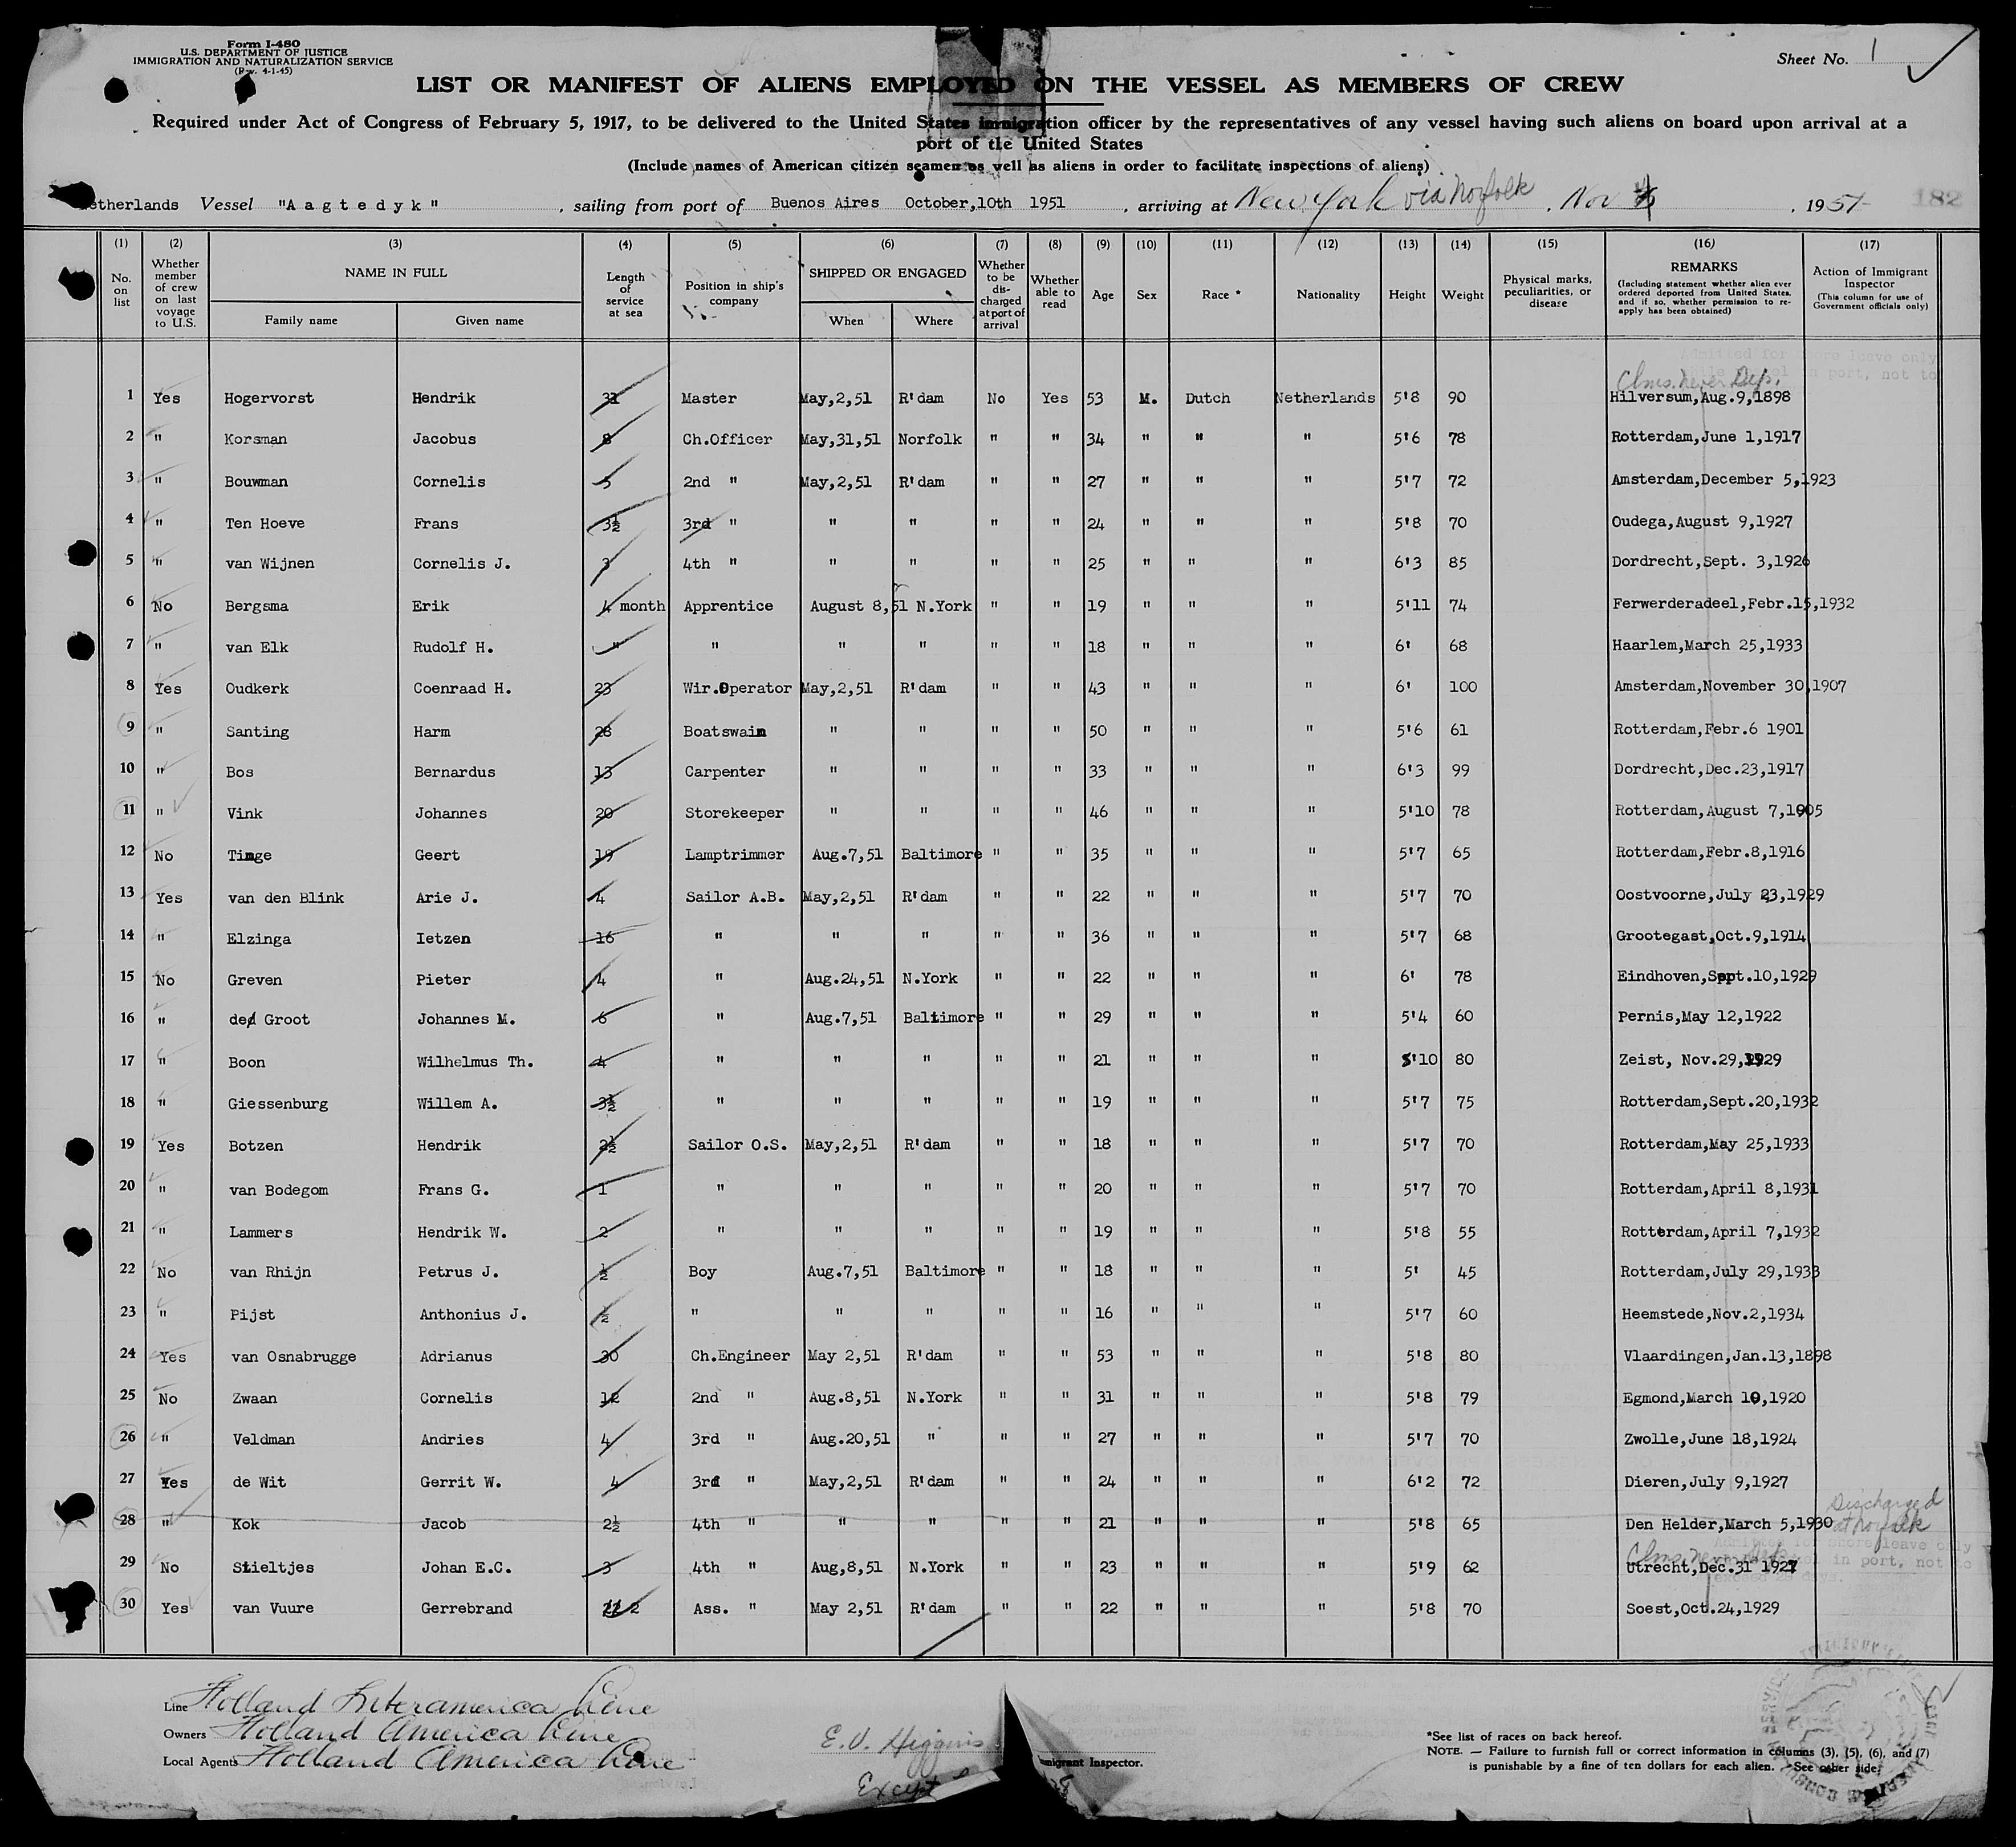 Form I-480
U.S. DEPARTMENT OF JUSTICE
IMMIGRATION AND NATURALIZATION SERVICE
(Rev. 4-1-45)
Sheet No. 1
LIST OR MANIFEST OF ALIENS EMPLOYED ON THE VESSEL AS MEMBERS OF CREW
Required under Act of Congress of February 5, 1917, to be delivered to the United States immigration officer by the representatives of any vessel having such aliens on board upon arrival at a
port of the United States
(Include names of American citizen seamen as well as aliens in order to facilitate inspections of aliens)
etherlands Vessel "Aagtedyk", sailing from port of Buenos Aires October,10th 1951, arriving at New York via Norfolk, Nov , 1951 182
(1) (2) (3) (4) (5) (6) (7) (8) (9) (10) (11) (12) (13) (14) (15) (16) (17)
No. on list
Whether member of crew on last voyage to U.S.
NAME IN FULL
Family name
Given name
Length of service at sea
Position in ship's company
SHIPPED OR ENGAGED
When
Where
Whether to be discharged at port of arrival
Whether able to read
Age
Sex
Race *
Nationality
Height
Weight
Physical marks, peculiarities, or disease
REMARKS
(Including statement whether alien ever ordered deported from United States, and if so, whether permission to re-apply has been obtained)
Action of Immigrant Inspector
(This column for use of Government officials only)
Admitted for shore leave only
in port, not to
Clms. never Dep.
1 Yes Hogervorst Hendrik 31 Master May,2,51 R'dam No Yes 53 M. Dutch Netherlands 5'8 90 Hilversum,Aug.9,1898
2 " Korsman Jacobus 8 Ch.Officer May,31,51 Norfolk " " 34 " " " 5'6 78 Rotterdam,June 1,1917
3 " Bouwman Cornelis 5 2nd " May,2,51 R'dam " " 27 " " " 5'7 72 Amsterdam,December 5,1923
4 " Ten Hoeve Frans 3½ 3rd " " " " " 24 " " " 5'8 70 Oudega,August 9,1927
5 " van Wijnen Cornelis J. 3 4th " " " " " 25 " " " 6'3 85 Dordrecht,Sept. 3,1926
6 No Bergsma Erik 4 month Apprentice August 8,51 N.York " " 19 " " " 5'11 74 Ferwerderadeel,Febr.15,1932
7 " van Elk Rudolf H. " " " " " " 18 " " " 6' 68 Haarlem,March 25,1933
8 Yes Oudkerk Coenraad H. 23 Wir.Operator May,2,51 R'dam " " 43 " " " 6' 100 Amsterdam,November 30,1907
9 " Santing Harm 28 Boatswain " " " " 50 " " " 5'6 61 Rotterdam,Febr.6 1901
10 " Bos Bernardus 13 Carpenter " " " " 33 " " " 6'3 99 Dordrecht,Dec.23,1917
11 " Vink Johannes 20 Storekeeper " " " " 46 " " " 5'10 78 Rotterdam,August 7,1905
12 No Tinge Geert 19 Lamptrimmer Aug.7,51 Baltimore " " 35 " " " 5'7 65 Rotterdam,Febr.8,1916
13 Yes van den Blink Arie J. 4 Sailor A.B. May,2,51 R'dam " " 22 " " " 5'7 70 Oostvoorne,July 23,1929
14 " Elzinga Ietzen 16 " " " " " 36 " " " 5'7 68 Grootegast,Oct.9,1914
15 No Greven Pieter 4 " Aug.24,51 N.York " " 22 " " " 6' 78 Eindhoven,Sept.10,1929
16 " de Groot Johannes M. 6 " Aug.7,51 Baltimore " " 29 " " " 5'4 60 Pernis,May 12,1922
17 " Boon Wilhelmus Th. 4 " " " " " 21 " " " 5'10 80 Zeist, Nov.29,1929
18 " Giessenburg Willem A. 3½ " " " " " 19 " " " 5'7 75 Rotterdam,Sept.20,1932
19 Yes Botzen Hendrik 2½ Sailor O.S. May,2,51 R'dam " " 18 " " " 5'7 70 Rotterdam,May 25,1933
20 " van Bodegom Frans G. 1 " " " " " 20 " " " 5'7 70 Rotterdam,April 8,1931
21 " Lammers Hendrik W. 2 " " " " " 19 " " " 5'8 55 Rotterdam,April 7,1932
22 No van Rhijn Petrus J. ½ Boy Aug.7,51 Baltimore " " 18 " " " 5' 45 Rotterdam,July 29,1933
23 " Pijst Anthonius J. ½ " " " " " 16 " " " 5'7 60 Heemstede,Nov.2,1934
24 Yes van Osnabrugge Adrianus 30 Ch.Engineer May 2,51 R'dam " " 53 " " " 5'8 80 Vlaardingen,Jan.13,1898
25 No Zwaan Cornelis 12 2nd " Aug.8,51 N.York " " 31 " " " 5'8 79 Egmond,March 10,1920
26 " Veldman Andries 4 3rd " Aug.20,51 " " " 27 " " " 5'7 70 Zwolle,June 18,1924
27 Yes de Wit Gerrit W. 4 3rd " May,2,51 R'dam " " 24 " " " 6'2 72 Dieren,July 9,1927
28 " Kok Jacob 2½ 4th " " " " " 21 " " " 5'8 65 Den Helder,March 5,1930 Discharged at Norfolk
Admitted for shore leave only
in port, not to
Clms. never
29 No Stieltjes Johan E.C. 3 4th " Aug,8,51 N.York " " 23 " " " 5'9 62 Utrecht,Dec.31 1927
30 Yes van Vuure Gerrebrand 2 Ass. " May 2,51 R'dam " " 22 " " " 5'8 70 Soest,Oct.24,1929
Line Holland Interamerica Line
Owners Holland America Line
Local Agents Holland America Line
E.V. Higgins
migrant Inspector.
Except
*See list of races on back hereof.
NOTE. — Failure to furnish full or correct information in columns (3), (5), (6), and (7)
is punishable by a fine of ten dollars for each alien. See other side.